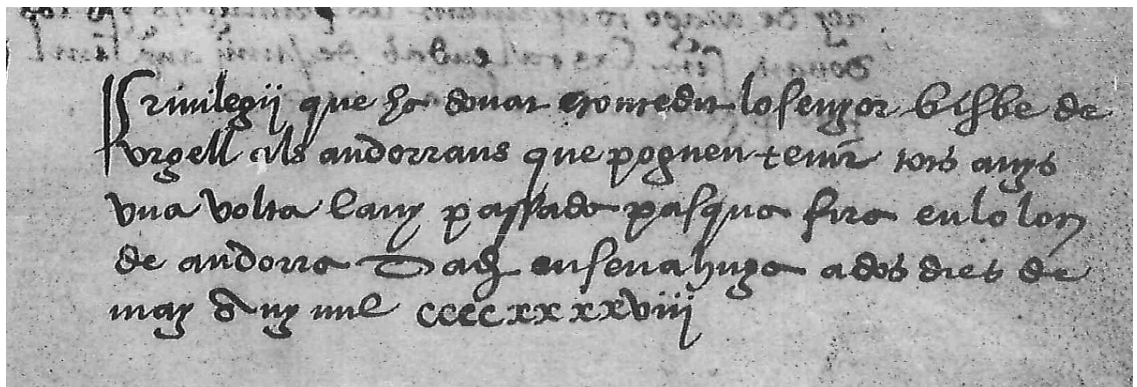 Privilegii que ha donat e concedit lo senyor bisbe de
Urgell als andorrans que poguen tenir tots anys
una volta lany passada pasqua fira en lo loch
de andorra Dat en sen ahuga a dos dies de
may any mil ccccxxxxviiij